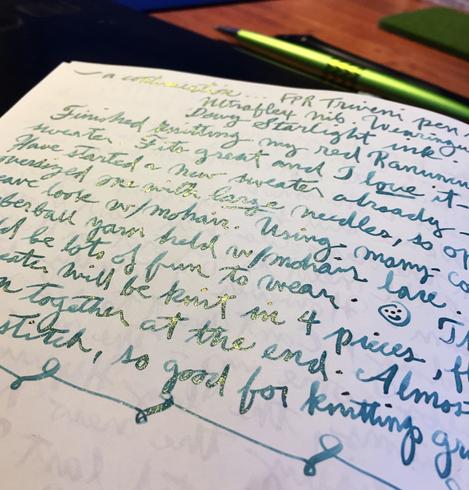 ~ a continuation... FPR Triveni pen
Ultraflex nib. Wearingeul
Dewy Starlight ink.
Finished knitting my red Ranuncu
sweater. Fits great and I love it
Have started a new sweater already -
oversized one with large needles, so op
eave look w/mohair. Using many-co
berball yarn held w/mohair lace.
ld be lots of fun to wear. Th
eater will be knit in 4 pieces, fl
n together at the end. Almos
stitch, so good for knitting gr